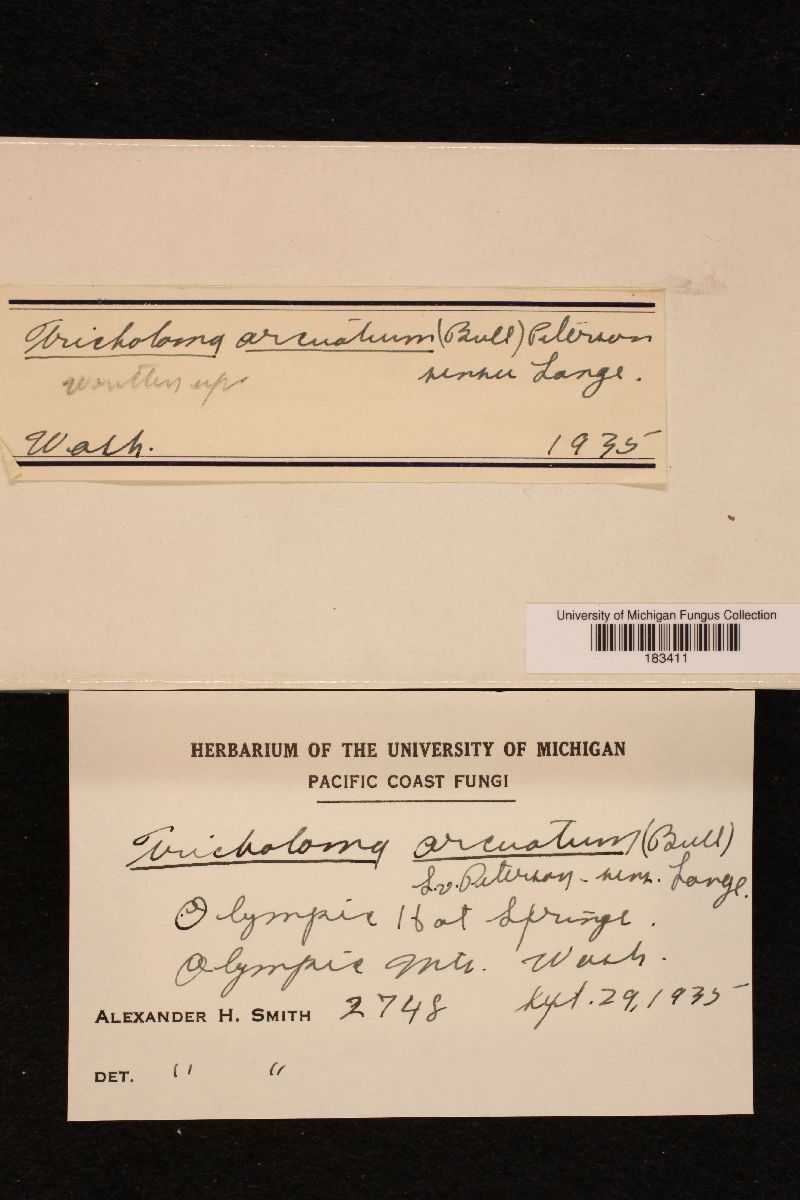 Tricholoma arcuatum (Bull) Peterson
written up sensu Lange.
Wash. 1935
University of Michigan Fungus Collection
183411
HERBARIUM OF THE UNIVERSITY OF MICHIGAN
PACIFIC COAST FUNGI
Tricholoma arcuatum (Bull)
S.v. Peterson - sens. Lange.
Olympic Hot Springs.
Olympic Mts. Wash.
ALEXANDER H. SMITH 2748 Sept. 29, 1935
DET. " "